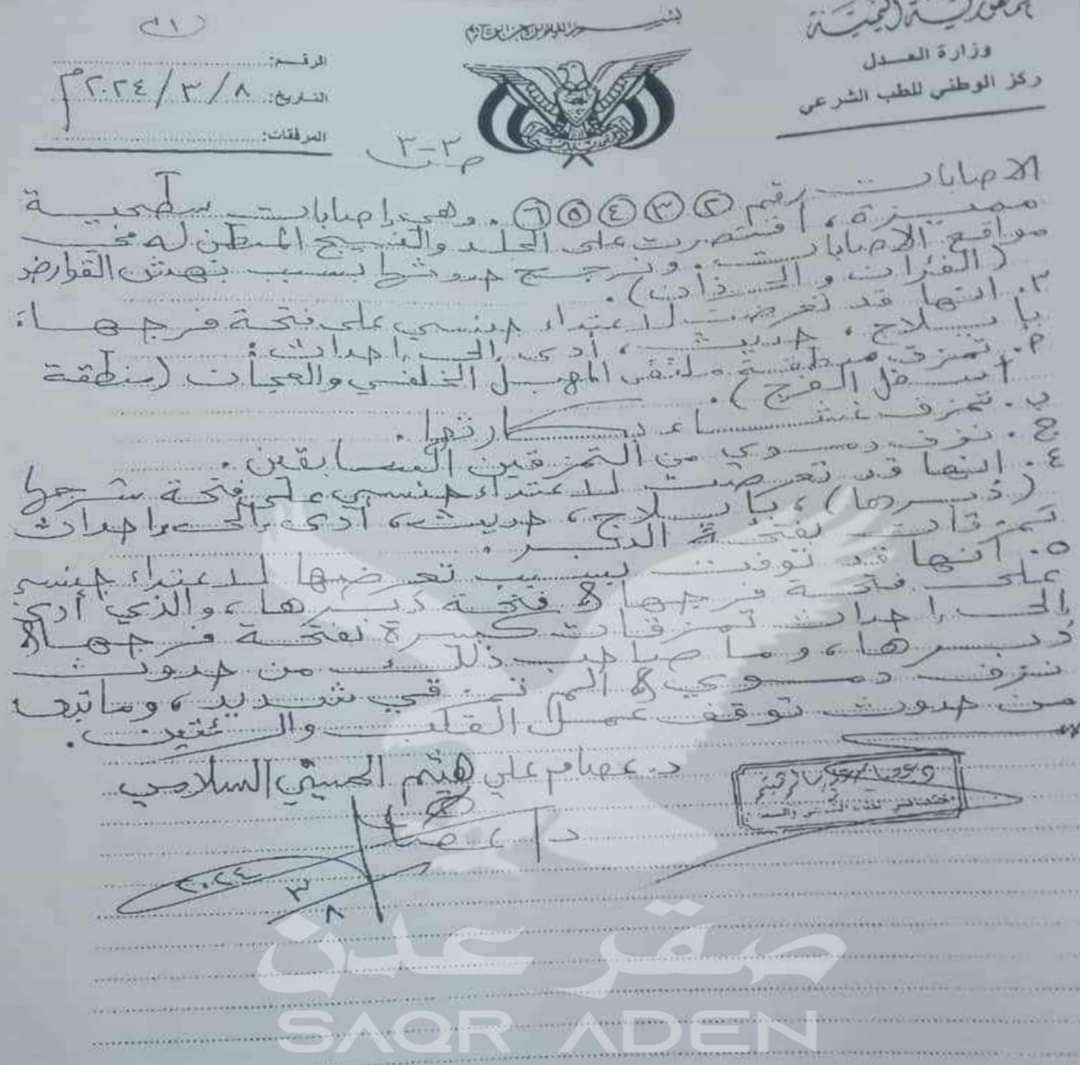 وزارة العدل
ركز الوطني للطب الشرعي
الرقم:
التاريخ: ٨ / ٣ / ٢٠٢٤م
المرفقات:
ص ٣-٣
الاصابات رقم ② ③ ④ ⑤ ⑥. وهي إصابات سطحية
مميزة، اقتصرت على الجلد والنسيج المبطن له في
مواقع الاصابات. ونرجح حدوثها بسبب نهش القوارض
(الفئران و الجرذان).
٣. انها قد تعرضت لاعتداء جنسي على فتحة فرجها،
بإيلاج، حديث، أدى إلى إحداث:
أ. تمزق منطقة ملتقى المهبل الخلفي والعجان (منطقة
أسفل الفرج).
ب. تمزق غشاء بكارتها.
ج. نزف دموي من التمزقين السابقين.
٤. انها قد تعرضت لاعتداء جنسي على فتحة شرجها
(دُبرها)، بإيلاج، حديث، أدى إلى إحداث
تمزقات لفتحة الدبر.
٥. أنها قد توفت بسبب تعرضها لاعتداء جنسي
على فتحة فرجها & فتحة دبرها، والذي أدى
إلى إحداث تمزقات كبيرة لفتحة فرجها &
دُبرها، وما صاحب ذلك من حدوث
نزف دموي & ألم تمزقي شديد، وما تبعه
من حدوث توقف عمل القلب والرئتين.
د. عصام علي هيثم الحسيني السلامي
د/ عصام
٨ / ٣ / ٢٠٢٤
صقر عدن
SAQR ADEN